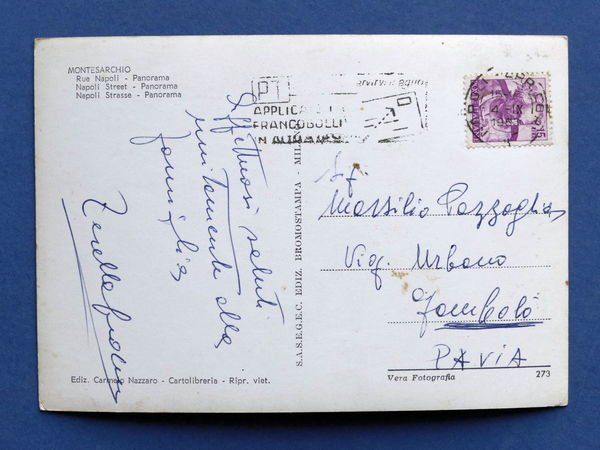 MONTESARCHIO
Rue Napoli - Panorama
Napoli Street - Panorama
Napoli Strasse - Panorama
PT
APPLICATE I
FRANCOBOLLI
IN ALTO A DES
15
Affettuosi saluti
unitamente alla
famiglia
S.A.S.E.G.E.C. EDIZ. BROMOSTAMPA - MI
Marsilio Pazzaglia
Via Urbano
Gambolò
PAVIA
Ediz. Carmelo Nazzaro - Cartolibreria - Ripr. viet.
Vera Fotografia
273